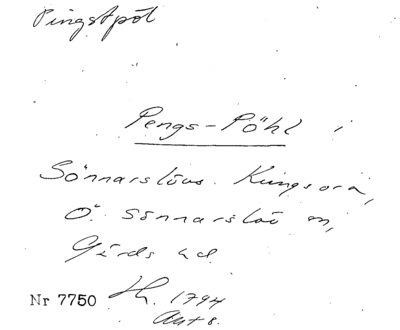 Pingstpöl
Pengs-Pöhl i
Sönnarslövs Kungsora,
Ö. Sönnarslöv sn,
Gärds hd
Nr 7750 Kr. 1794
Akt 8.